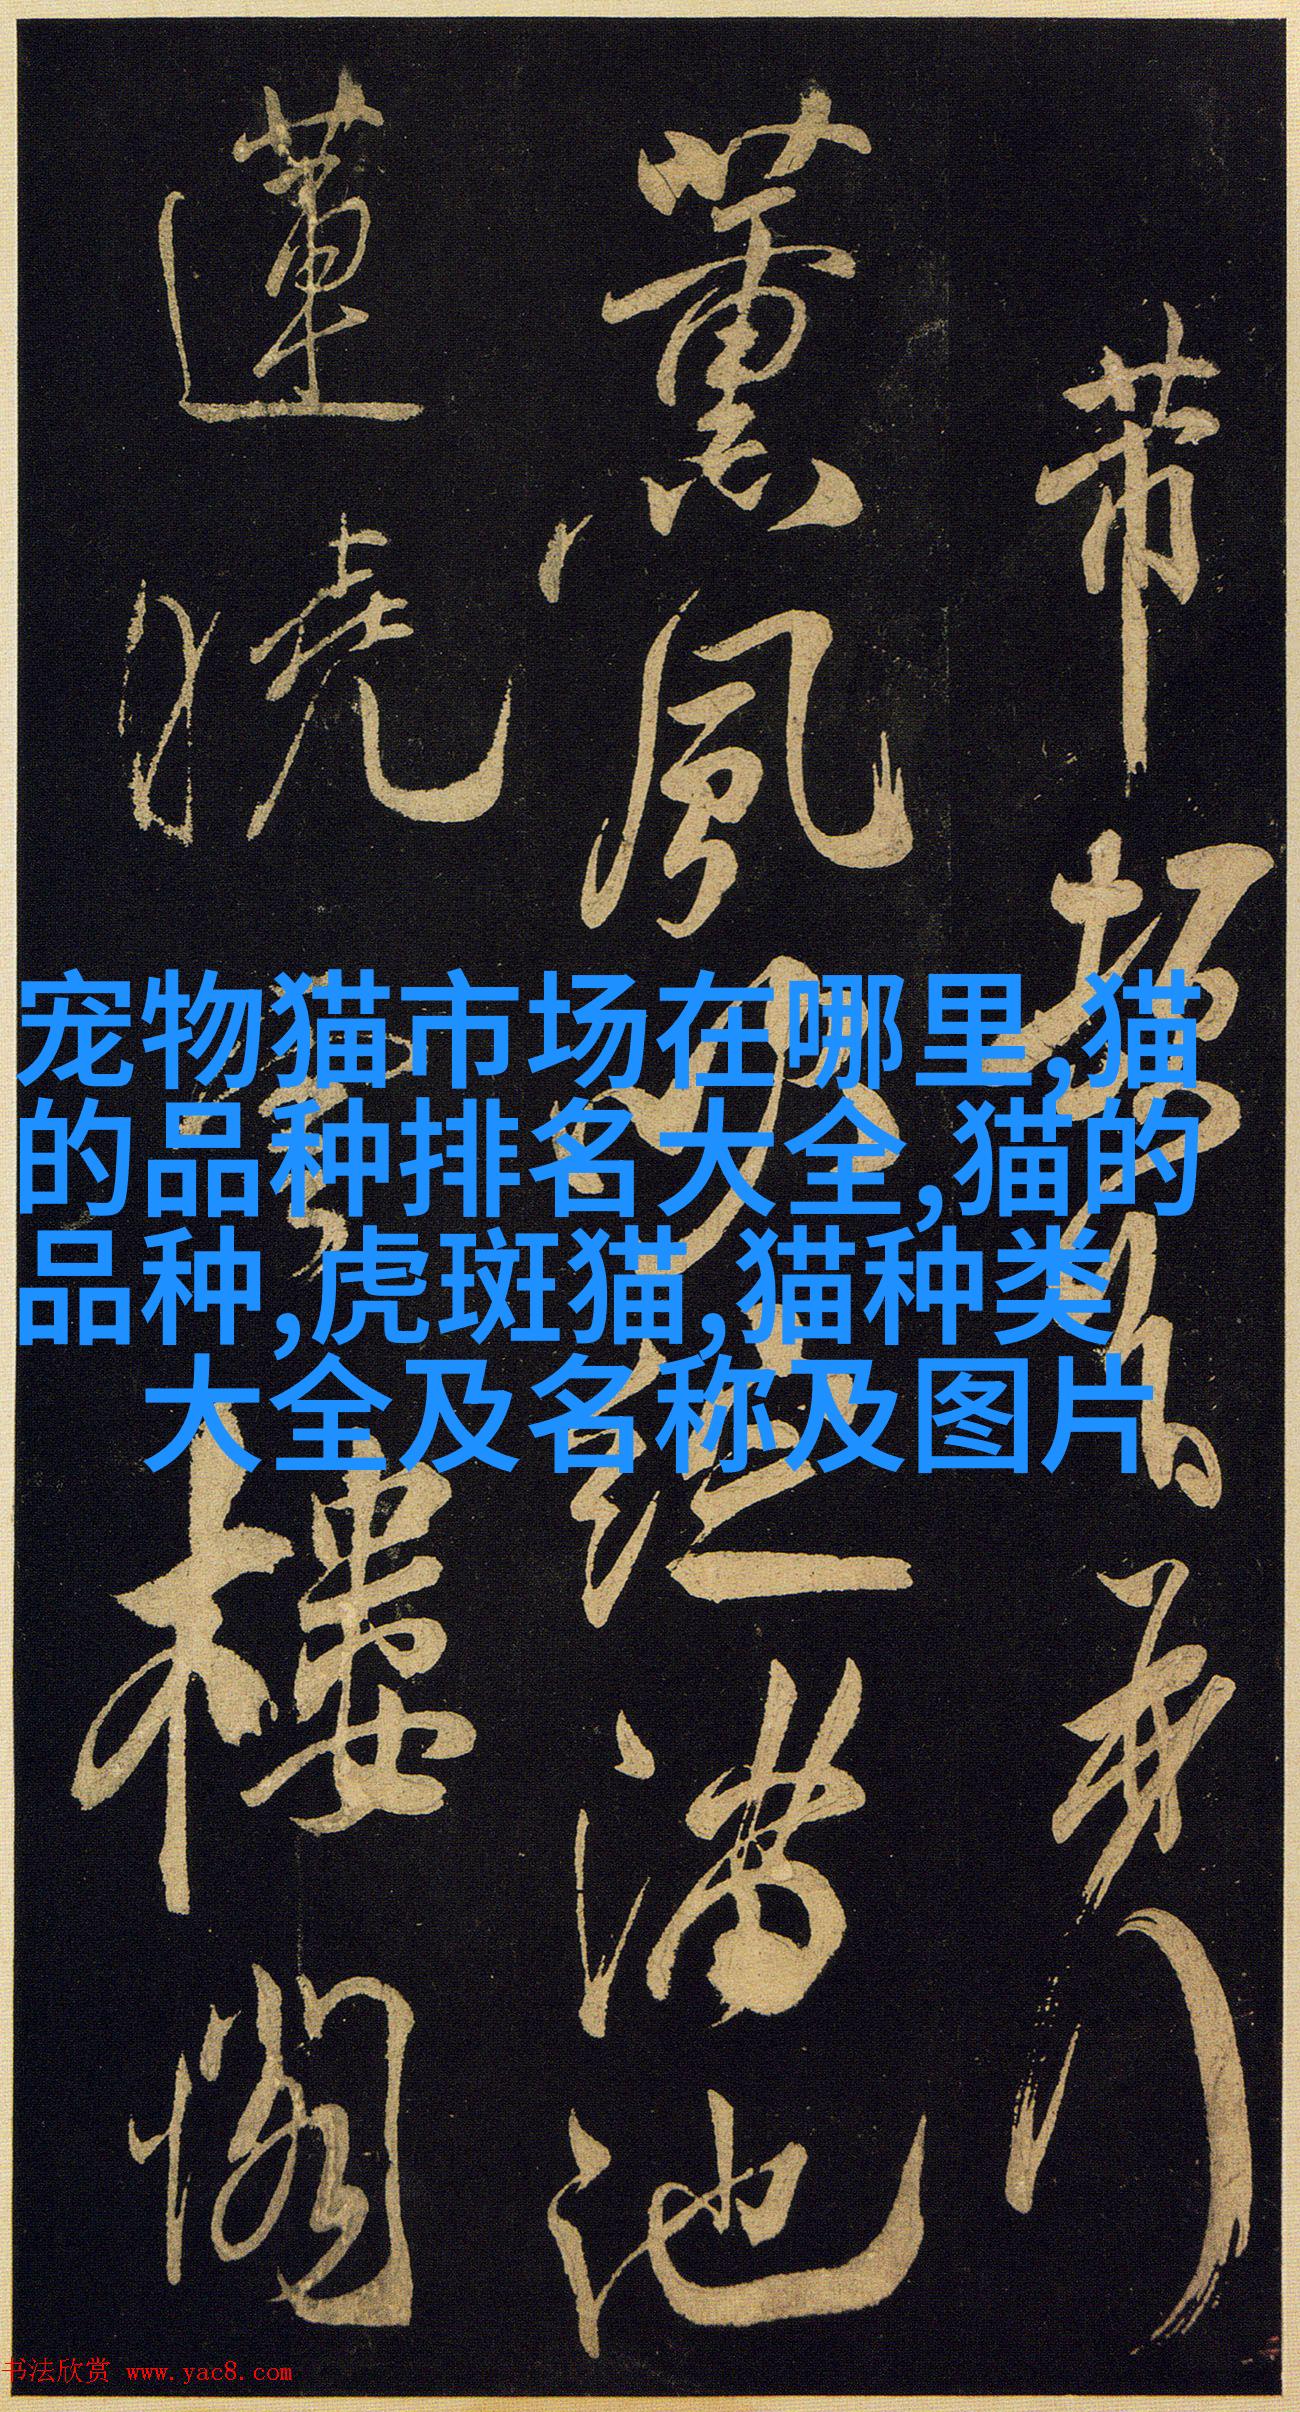 薰風吹綻滿池
蓮曉雲樓閣
宠物猫市场在哪里,猫
的品种排名大全,猫的
品种,虎斑猫,猫种类
大全及名称及图片
书法欣赏 www.yac8.com